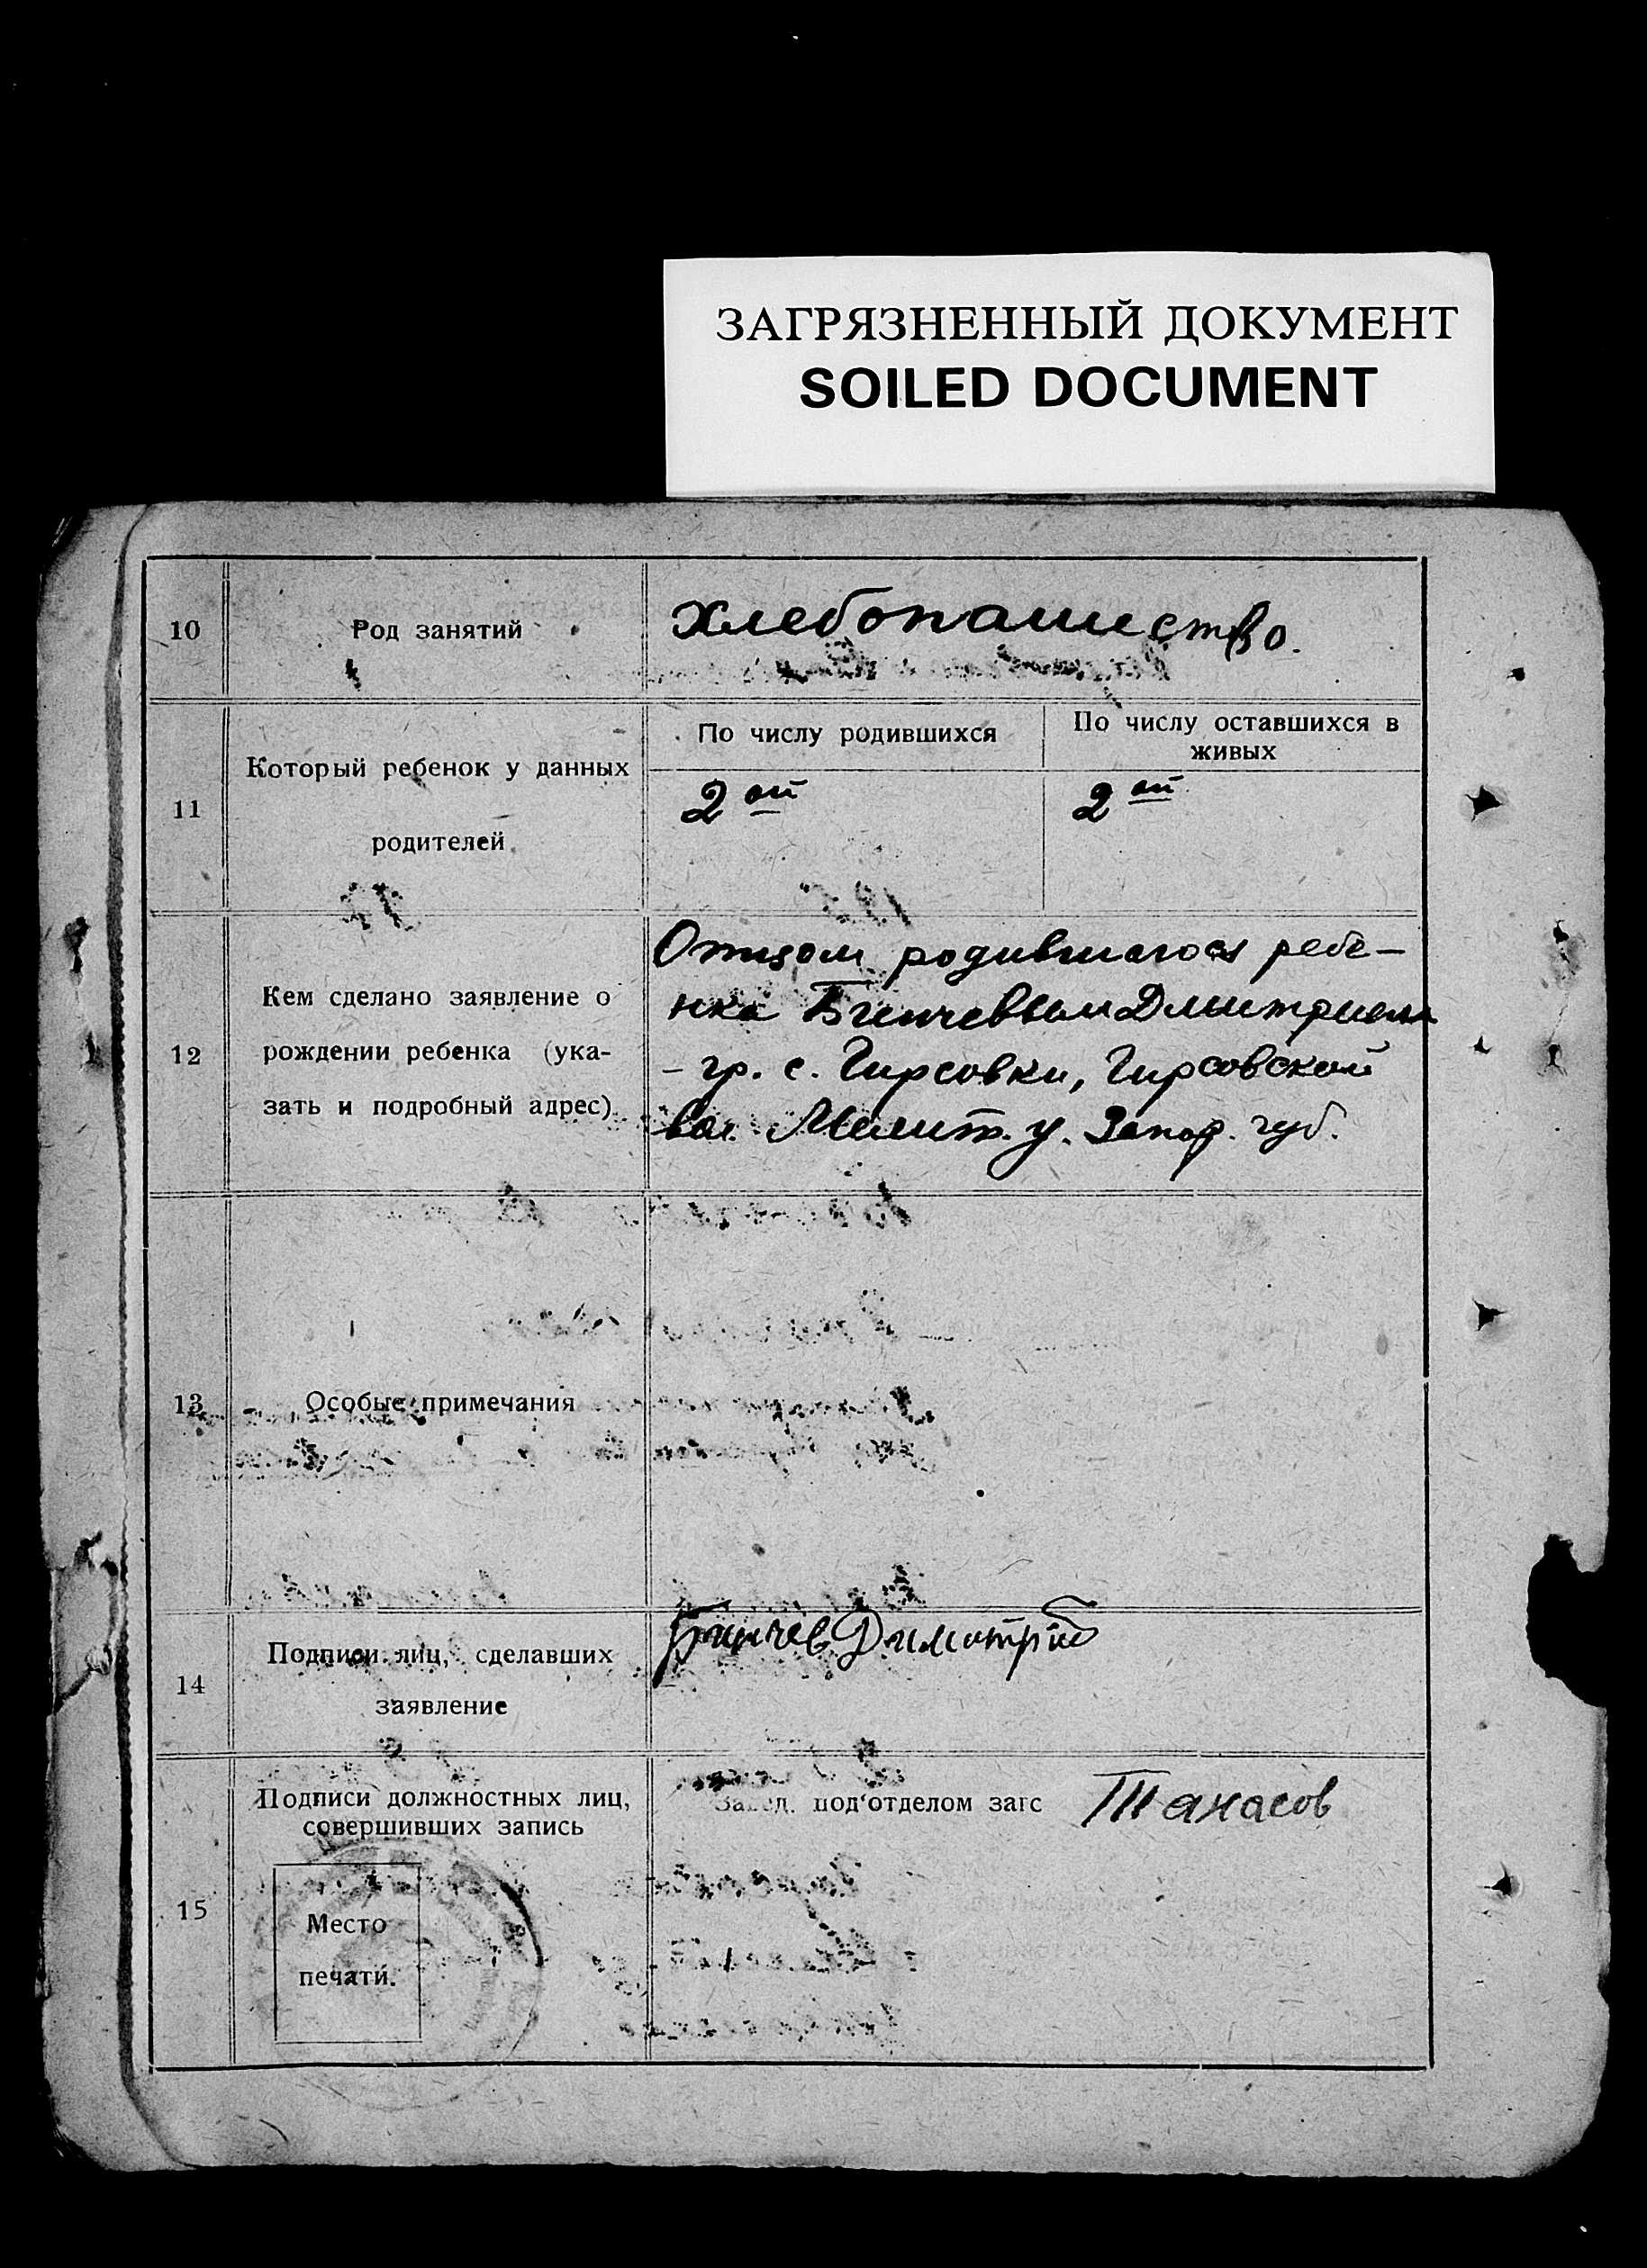 ЗАГРЯЗНЕННЫЙ ДОКУМЕНТ
SOILED DOCUMENT
10
Род занятий
Хлебопашество.
11
Который ребенок у данных
родителей
По числу родившихся
2 ой
По числу оставшихся в
живых
2 ой
12
Кем сделано заявление о
рождении ребенка (ука-
зать и подробный адрес)
Отцом родившагося ребе-
нка Дмитрием
- гр. с. Гирсовки, Гирсовской
вол. Мелит. у. Запор. губ.
13
Особые примечания
14
Подписи лиц, сделавших
заявление
Димитрий
15
Подписи должностных лиц,
совершивших запись
Место
печати.
Завед. под'отделом загс
Танасов